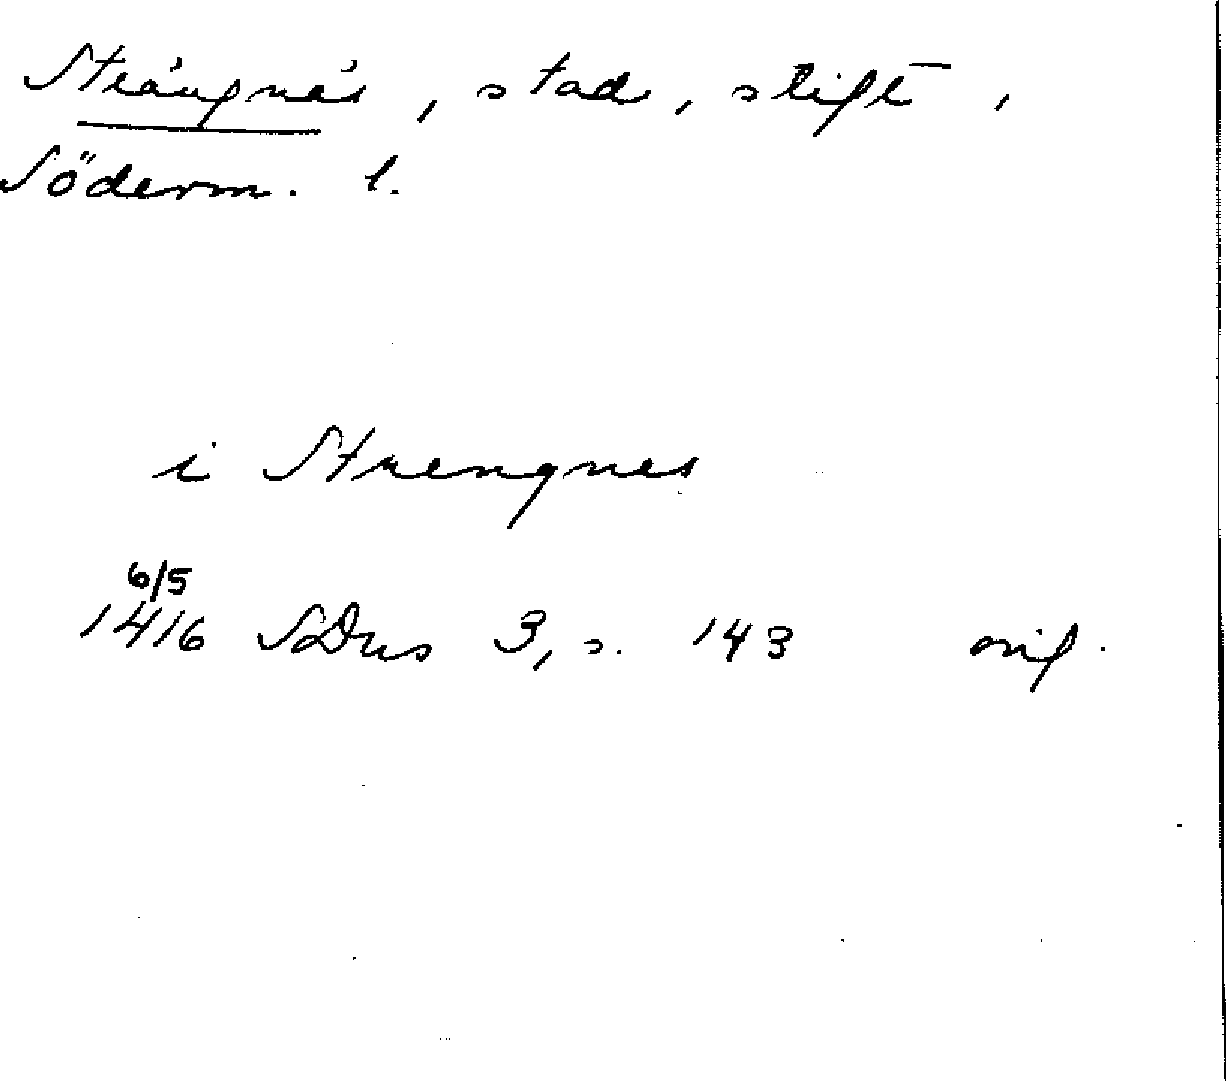 Strängnäs, stad, stift,
Söderm. l.
i Strengnes
6/5
1416 SDns 3, s. 143 orig.